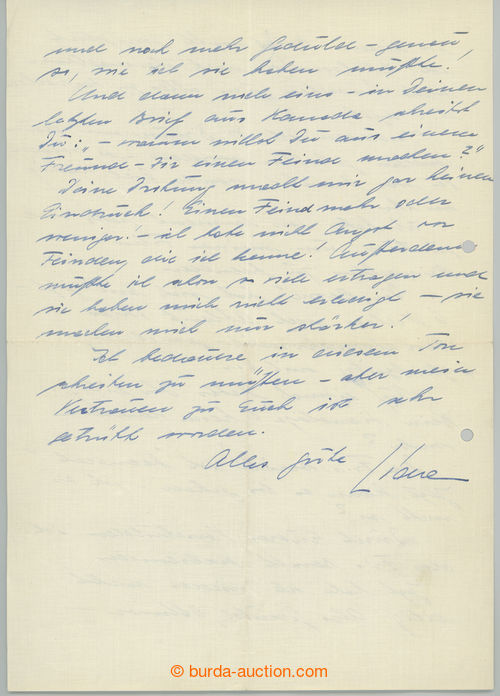 und noch mehr Geduld – genau
so, wie ich sie haben mußte!
Und dann noch eins – in Deinem
letzten Brief aus Kanada schreibst
Du: „– warum willst Du aus einem
Freund – Dir einen Feind machen?“
Deine Drohung macht mir gar keinen
Eindruck! Einen Feind mehr oder
weniger! – ich habe nicht Angst vor
Feinden, die ich kenne! Außerdem
mußte ich schon so viele ertragen und
sie haben mich nicht erledigt – sie
machen mich nur stärker!
Ich bedauere in diesem Ton
schreiben zu müßen – aber mein
Vertrauen zu Euch ist sehr
getrübt worden.
Alles gute
© burda-auction.com